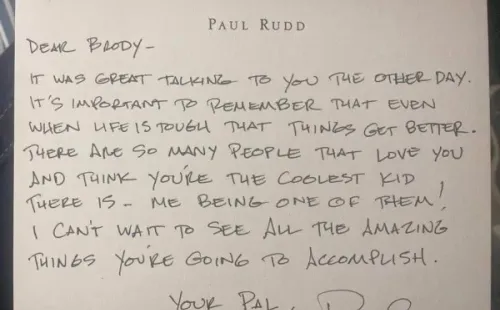 PAUL RUDD
DEAR BRODY-
IT WAS GREAT TALKING TO YOU THE OTHER DAY.
IT'S IMPORTANT TO REMEMBER THAT EVEN
WHEN LIFE IS TOUGH THAT THINGS GET BETTER.
THERE ARE SO MANY PEOPLE THAT LOVE YOU
AND THINK YOU'RE THE COOLEST KID
THERE IS - ME BEING ONE OF THEM!
I CAN'T WAIT TO SEE ALL THE AMAZING
THINGS YOU'RE GOING TO ACCOMPLISH.
YOUR PAL,